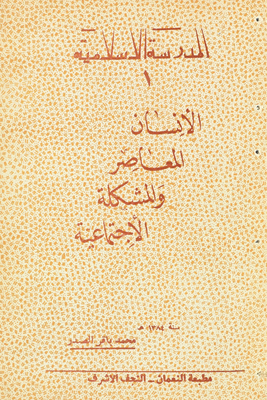 المدرسة الاسلامية
١
الإنسان
المعاصر
والمشكلة
الإجتماعية
سنة ١٣٨٤ هـ
محمد باقر الصدر
مطبعة النعمان - النجف الأشرف